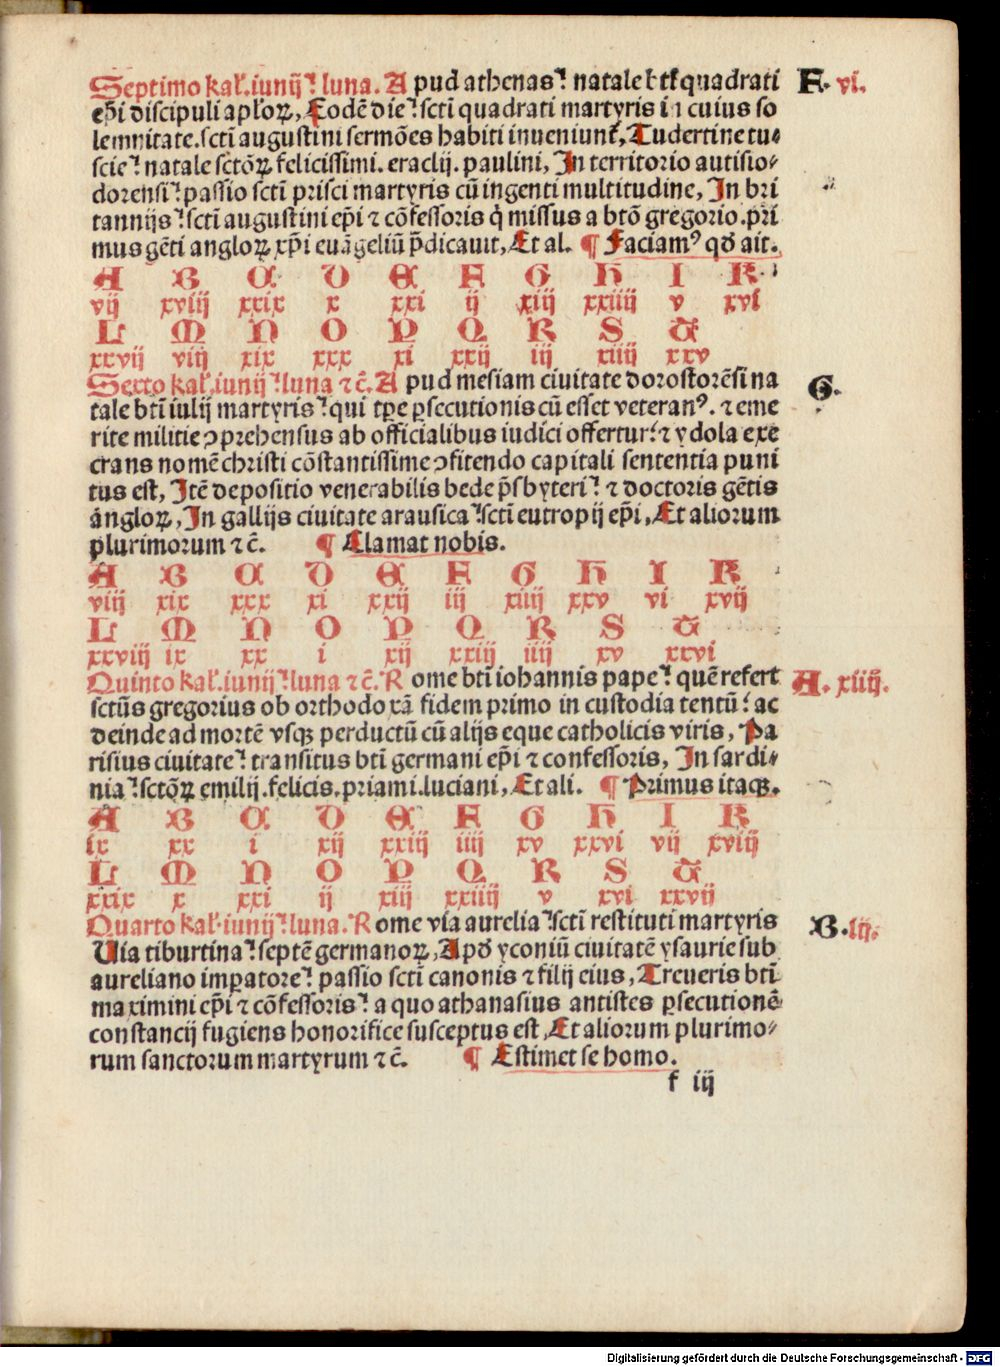 Septimo kal̕.iunij⹎ luna. A pud athenas⹎ natale bt̄i quadrati F. vi.
ep̄i discipuli apl̕oꝝ, Eodē die⹎ sctī quadrati martyris in cuius so
lemnitate.sctī augustini sermōes habiti inueniunt̄, Tudertine tu⸗
scie⹎ natale sctōꝝ felicissimi. eraclij. paulini, In territorio autisio⸗
dorensi⹎ passio sctī prisci martyris cū ingenti multitudine, In bri
tannijs⹎ sctī augustini ep̄i ⁊ cōfessoris q̇ missus a btō gregorio.pri
mus gēti angloꝝ xp̄i euāgeliū p̄dicauit, Et al. ¶ Faciamꝰ qđ ait.
A B C D E F G H I K
vij xviij xxix x xxi ij xiij xxiiij v xvi
L M N O P Q R S T
xxvij viij xix xxx xi xxij iij xiiij xxv
Sexto kal̕.iunij⹎ luna ⁊c̄. A pud mesiam ciuitate dorostorēsi na G.
tale btī iulij martyris⹎ qui tp̄e ꝑsecutionis cū esset veteranꝰ. ⁊ eme
rite militie ↄprehensus ab officialibus iudici offertur⹎ ⁊ ydola exe
crans nomē christi cōstantissime ↄfitendo capitali sententia puni
tus est, Itē depositio venerabilis bede p̄sbyteri⹎ ⁊ doctoris gētis
angloꝝ, In gallijs ciuitate arausica⹎ sctī eutropij ep̄i, Et aliorum
plurimorum ⁊c̄. ¶ Clamat nobis.
A B C D E F G H I K
viij xix xxx xi xxij iij xiiij xxv vi xvij
L M N O P Q R S T
xxviij ix xx i xij xxiij iiij xv xxvi
Quinto kal̕.iunij⹎ luna ⁊c̄. R ome btī iohannis pape⹎ quē refert A. xiiij.
sctūs gregorius ob orthodoxā fidem primo in custodia tentū⹎ ac
deinde ad mortē vsqꝫ perductū cū alijs eque catholicis viris, Pa
risius ciuitate⹎ transitus btī germani ep̄i ⁊ confessoris, In sardi⸗
nia⹎ sctōꝝ emilij.felicis.priami.luciani, Et ali. ¶ Primus itaqꝫ.
A B C D E F G H I K
ix xx i xij xxiij iiij xv xxvi vij xviij
L M N O P Q R S T
xxix x xxi ij xiij xxiiij v xvi xxvij
Quarto kal̕.iunij⹎ luna. R ome via aurelia⹎ sctī restituti martyris B. iij.
Uia tiburtina⹎ septē germanoꝝ, Apđ yconiū ciuitatē ysaurie sub
aureliano imꝑatore⹎ passio sctī canonis ⁊ filij eius, Treueris btī
maximini ep̄i ⁊ cōfessoris⹎ a quo athanasius antistes ꝑsecutionē
constancij fugiens honorifice susceptus est, Et aliorum plurimo⸗
rum sanctorum martyrum ⁊c̄. ¶ Estimet se homo.
f iij
Digitalisierung gefördert durch die Deutsche Forschungsgemeinschaft - DFG